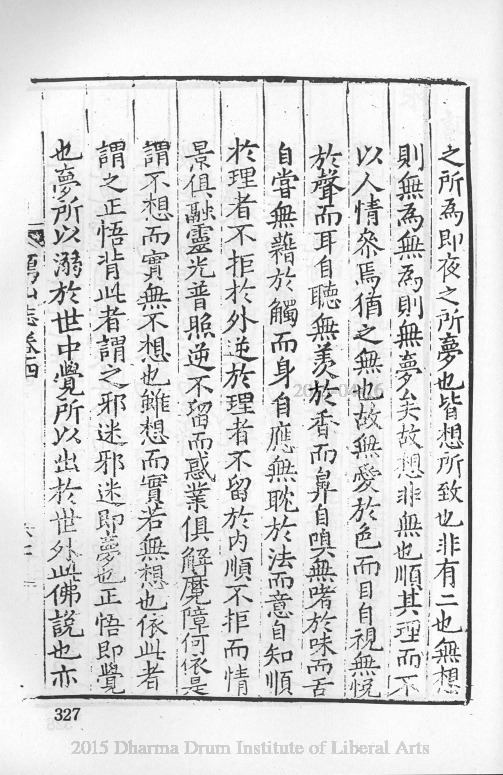 之所為即夜之所夢也皆想所致也非有二也無想
則無為無為則無夢矣故想非無也順其理而不
以人情叅焉猶之無也故無愛於色而目自視無悅
於聲而耳自聽無羨於香而鼻自嗅無嗜於味而舌
自嘗無藉於觸而身自應無耽於法而意自知順
於理者不拒於外逆於理者不留於內順不拒而情
景俱融靈光普照逆不留而惑業俱解魔障何依是
謂不想而實無不想也雖想而實若無想也依此者
謂之正悟背此者謂之邪迷邪迷即夢也正悟即覺
也夢所以溺於世中覺所以出於世外此佛說也亦
山志卷四
327
2015 Dharma Drum Institute of Liberal Arts